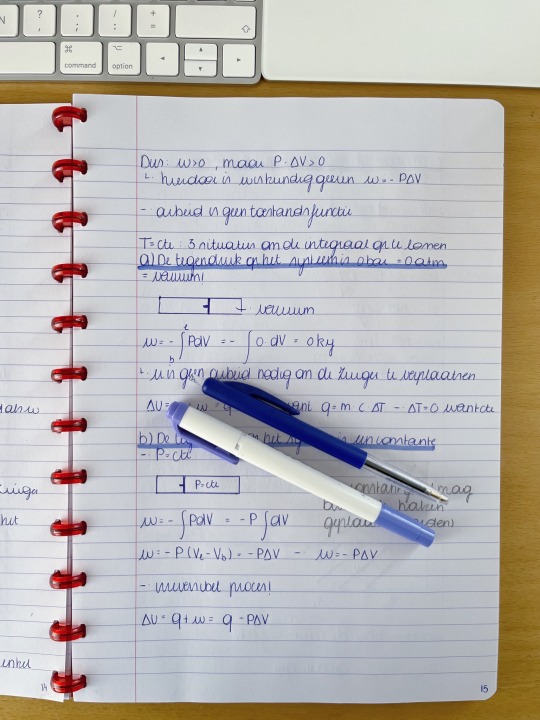 N
?
,
:
;
/
:
+
=
⇧
⌘
command
⌥
option
◄
▲
▼
►
Dus: w>0, maar P·ΔV>0
hierdoor is wiskundig gezien w=-PΔV
- arbeid is geen toestandsfunctie
T=cte: 3 situaties om de integraal op te lossen
a) De tegendruk op het systeem is 0 bar = 0 atm
= vacuum!
vacuum
w = -∫PdV = -∫0.dV = 0
er is geen arbeid nodig om de zuiger te verplaatsen
ΔU = w = q want q = m c ΔT - ΔT=0 want cte
b) De het is een constante
- P=cte
P=cte
constante mag
haken
w = -∫PdV = -P∫dV
w = -P(Ve-Vb) = -PΔV - w=-PΔV
- irreversibel proces!
ΔU = q+w = q-PΔV
14
15